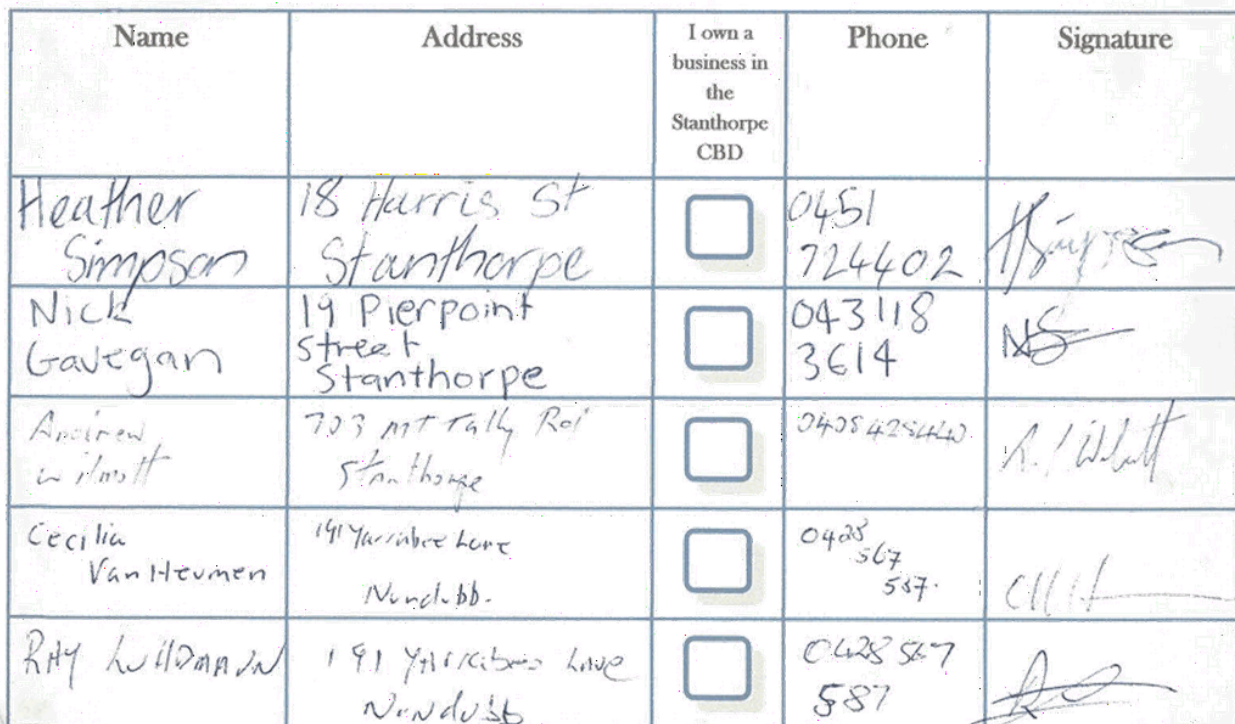 Name
Address
I own a
business in
the
Stanthorpe
CBD
Phone
Signature
Heather
Simpson
18 Harris St
Stanthorpe
0451
724402
Nick
Gavegan
19 Pierpoint
Street
Stanthorpe
043118
3614
NG
Andrew
Wilmott
703 Mt Tully Rd
Stanthorpe
Cecilia
Van Heumen
191 Yarrabee Lane
Nundubb.
0428
567
587.
RAY
191 Yarrabee Lane
Nundubb
0428 567
587